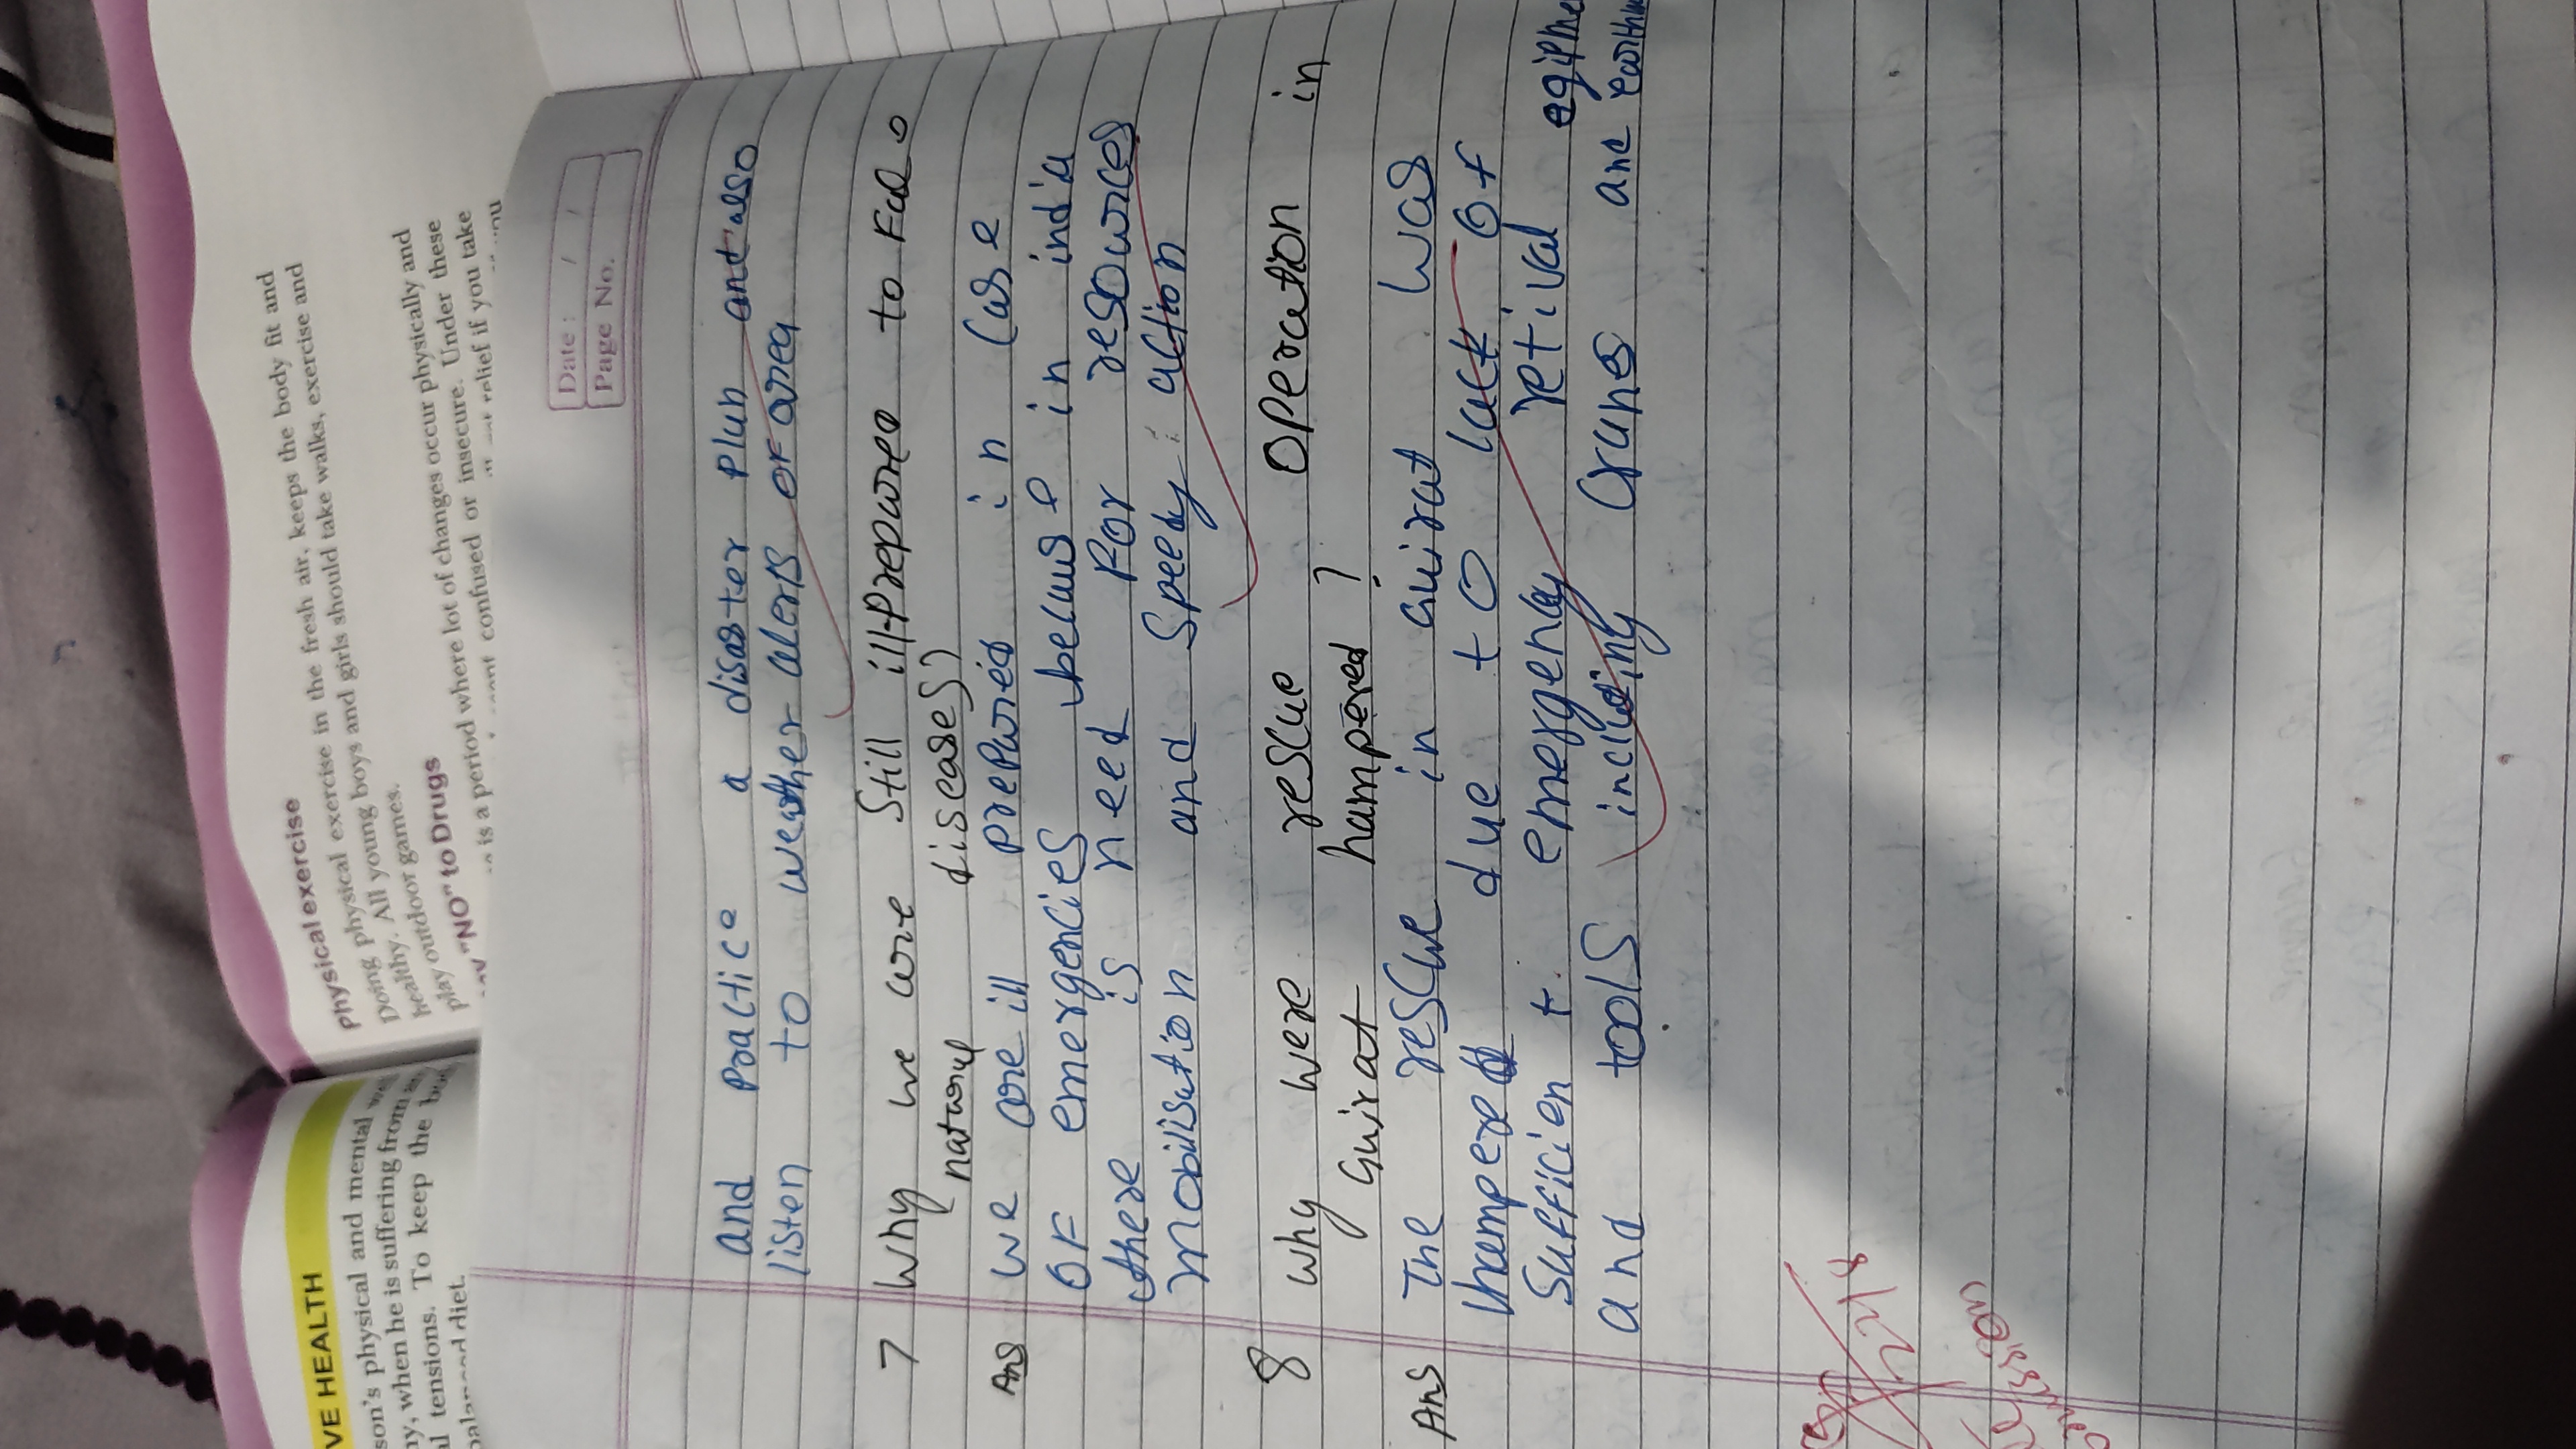 VE HEALTH
son's physical and mental
ny, when he is suffering from
al tensions. To keep the
balanced diet.
Physical exercise
Doing physical exercise in the fresh air, keeps the body fit and
healthy. All young boys and girls should take walks, exercise and
play outdoor games.
"NO" to Drugs
is a period where lot of changes occur physically and
confused or insecure. Under these
relief if you take
you
Date : / /
Page No.
and practice a disaster plan and also
listen to weather alerts of area
7 Why we are still ill-prepared to Face
natural diseases?
Ans we are ill prepared in case
OF emergencies because in india
there is need For resources
mobilisation and speedy action
8 why were rescue operation in
Guirat hampered ?
Ans The rescue in Guirat was
hampered due to lack of
sufficient emergency retival egipme
and tools including cranes and earthm
22/8